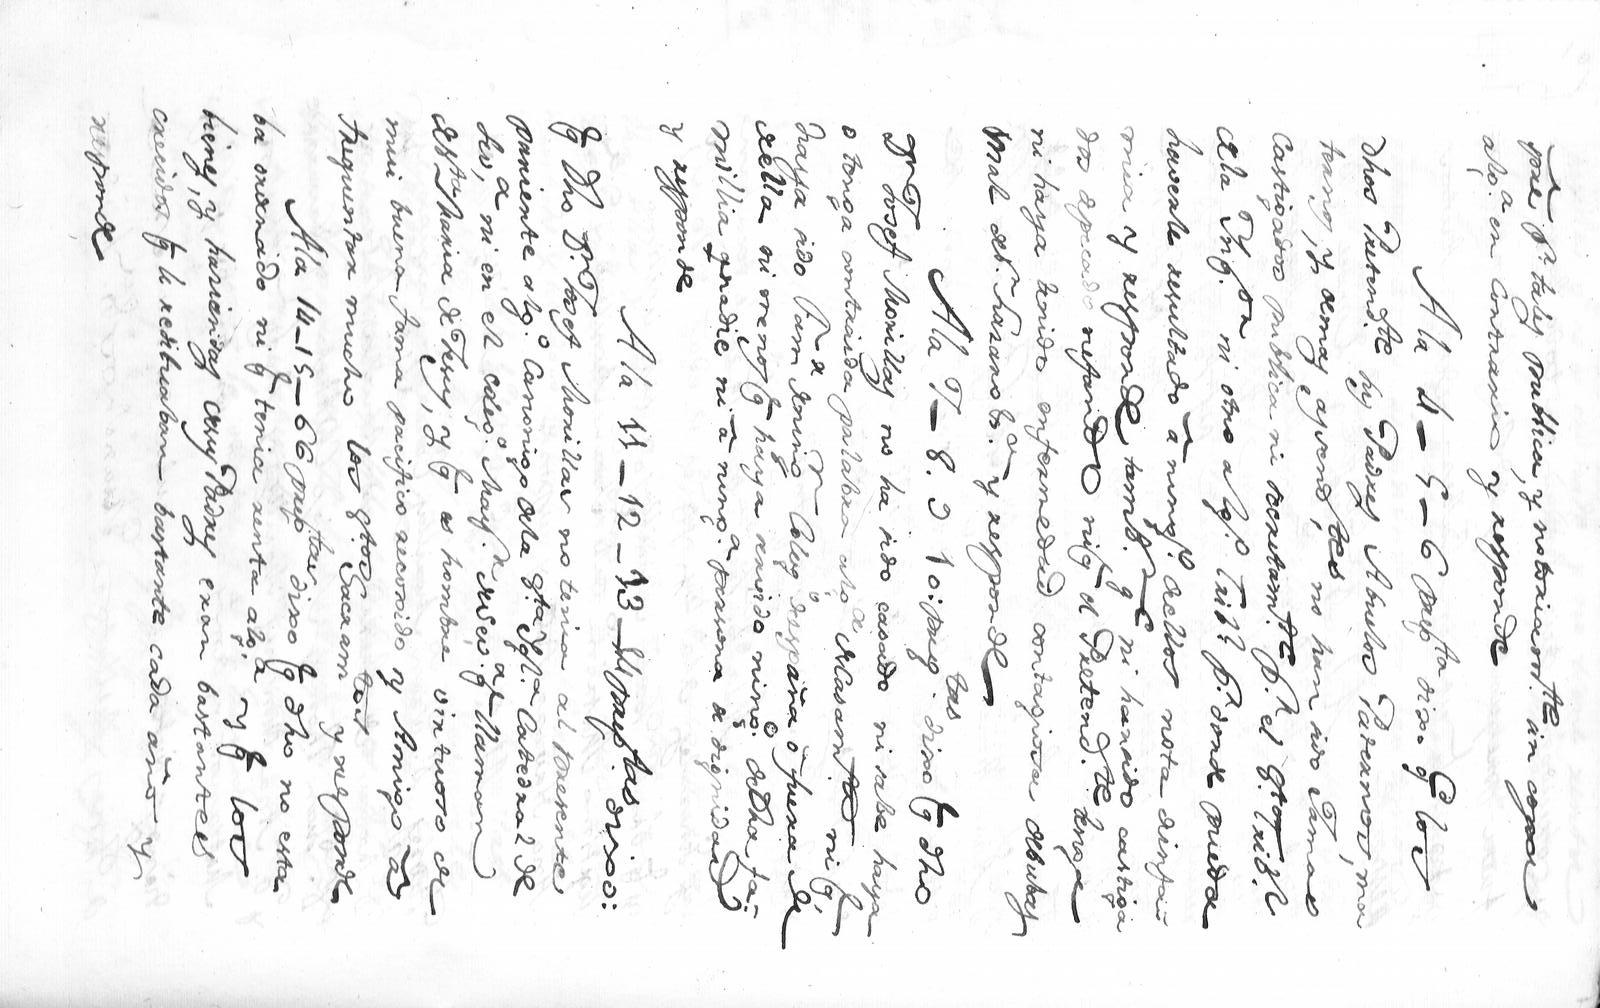 pre p.r tales publica, y notoriam.te sin cosa
alg.a en Contrario y responde
A la 4 – 5 – 6 preg.tas dixo q los
dhos Pretend.te sus Padres Abuelos Paternos, ma
ternos, y demas ascend.tes no han sido Jamas
Castigados publica ni secretam.te p.r el S.to Trib.l
dela Inq.on ni otro alg.o Trib.l p.r donde pueda
haverle resultado â ning.o dellos nota de infa
mia y responde tamb.n q ni han sido castiga
dos nefando ni q el Pretend.te tenga
ni haya tenido enfermedad contagiosa de bubas
mal de S.n Lazaro &.a y responde
A la 7 – 8. 9 10: preg.tas dixo q dho
D.n Josef Morillas no ha sido casado ni sabe haya
o tenga contraida palabra alg.a de Casam.to ni q.
haya sido de Coleg.o de españa ô fuera de
ella ni menos q haya servido ning.o de dha fa-
millia â nadie ni â ning.a persona de dignidad
y responde
A la 11 – 12 – 13 – preg.tas dixo:
q dho D.n Josef Morillas no tenia al presente
pariente alg.o Canonigo dela S.ta Igl.a Catedral de
ni en el coleg.o may.r q llaman
y q es hombre virtuoso de
mui buena fama pacifico recoxido y Amigo de
frequentar mucho los s.tos Sacram.tos y responde
A la 14 – 15 – 16 preg.tas dixo q dho no esta
ba ordenado ni q tenia renta alg.a y q los
bienes, y haziendas de sus Padres eran bastantes
crecidos q le redituaban bastante cada año y
responde